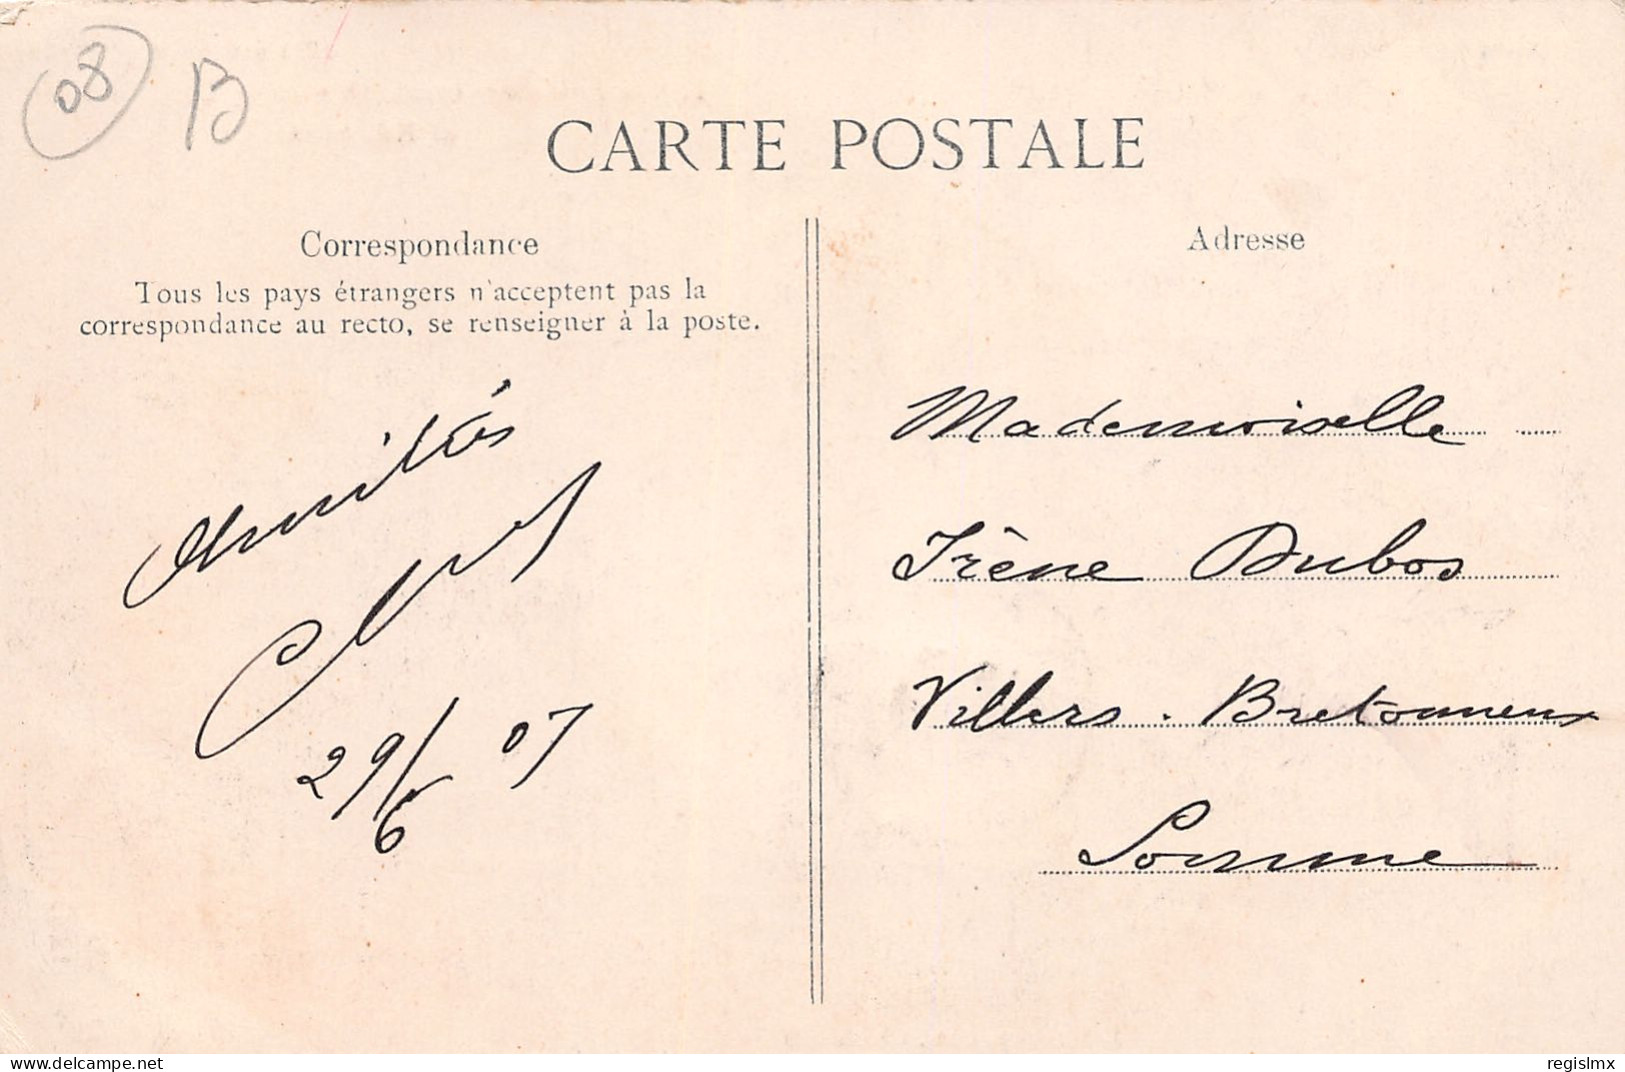 08 B
CARTE POSTALE
Correspondance
Tous les pays étrangers n'acceptent pas la
correspondance au recto, se renseigner à la poste.
Amitiés
29/6 07
Adresse
Mademoiselle
Irène Dubos
Villers-Bretonneux
Somme
www.delcampe.net
regislmx